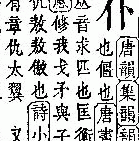 仆
唐韻集韻
也偃也唐書
音求匹也匡衡
修我戈矛與子
仇敖敖傲也詩小
有章仇太翼 文